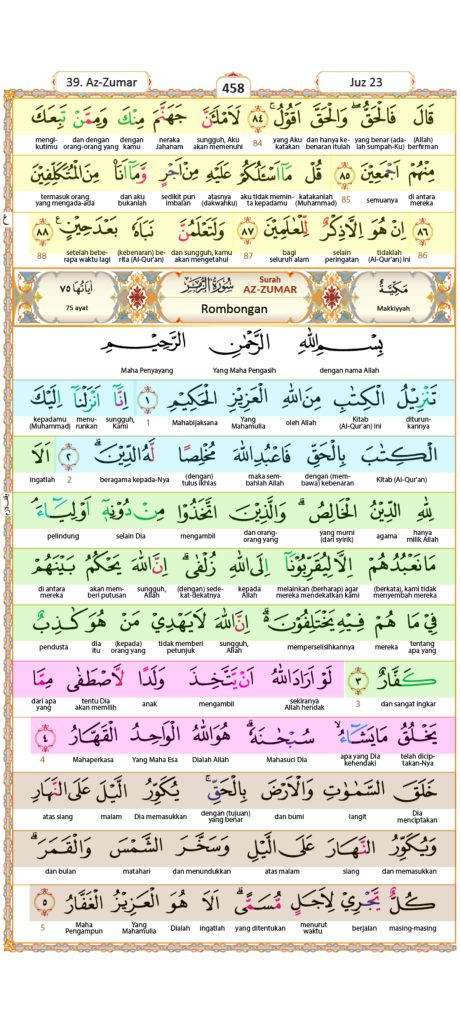 39. Az-Zumar
458
Juz 23
قَالَ فَالْحَقُّۖ وَالْحَقَّ اَقُوْلُۚ ٨٤ لَاَمْلَـَٔنَّ جَهَنَّمَ مِنْكَ وَمِمَّنْ تَبِعَكَ
(Allah) berfirman yang benar (adalah sumpah-Ku) dan hanya kebenaran itulah yang Aku katakan 84 sungguh, Aku akan memenuhi neraka Jahanam dengan kamu dan dengan orang-orang yang mengikutimu
مِنْهُمْ اَجْمَعِيْنَ ٨٥ قُلْ مَآ اَسْـَٔلُكُمْ عَلَيْهِ مِنْ اَجْرٍ وَّمَآ اَنَا۠ مِنَ الْمُتَكَلِّفِيْنَ
di antara mereka semuanya 85 katakanlah (Muhammad) aku tidak meminta kepadamu atasnya (dakwahku) sedikit pun imbalan dan aku bukanlah termasuk orang yang mengada-ada
٨٦ اِنْ هُوَ اِلَّا ذِكْرٌ لِّلْعٰلَمِيْنَ ٨٧ وَلَتَعْلَمُنَّ نَبَاَهٗ بَعْدَ حِيْنٍ ࣖ ٨٨
86 tidaklah (Al-Qur'an) ini selain peringatan bagi seluruh alam 87 dan sungguh, kamu akan mengetahui (kebenaran) berita (Al-Qur'an) setelah beberapa waktu lagi 88
ع
مَكِّيَّةٌ
Makkiyyah
Surah
AZ-ZUMAR
سُوْرَةُ الزُّمَرِ
Rombongan
اٰيَاتُهَا ٧٥
75 ayat
بِسْمِ اللّٰهِ الرَّحْمٰنِ الرَّحِيْمِ
dengan nama Allah Yang Maha Pengasih Maha Penyayang
تَنْزِيْلُ الْكِتٰبِ مِنَ اللّٰهِ الْعَزِيْزِ الْحَكِيْمِ ١ اِنَّآ اَنْزَلْنَآ اِلَيْكَ
diturunkannya Kitab (Al-Qur'an) ini oleh Allah Yang Mahamulia Mahabijaksana 1 sungguh, Kami menurunkan kepadamu (Muhammad)
الْكِتٰبَ بِالْحَقِّ فَاعْبُدِ اللّٰهَ مُخْلِصًا لَّهُ الدِّيْنَۗ ٢ اَلَا
Kitab (Al-Qur'an) dengan (membawa) kebenaran maka sembahlah Allah (dengan) tulus ikhlas beragama kepada-Nya 2 ingatlah
لِلّٰهِ الدِّيْنُ الْخَالِصُۗ وَالَّذِيْنَ اتَّخَذُوْا مِنْ دُوْنِهٖٓ اَوْلِيَاۤءَۘ
hanya milik Allah agama yang murni (dari syirik) dan orang-orang yang mengambil selain Dia pelindung
مَا نَعْبُدُهُمْ اِلَّا لِيُقَرِّبُوْنَآ اِلَى اللّٰهِ زُلْفٰىۗ اِنَّ اللّٰهَ يَحْكُمُ بَيْنَهُمْ
(berkata), kami tidak menyembah mereka melainkan (berharap) agar mereka mendekatkan kami kepada Allah (dengan) sedekat-dekatnya sungguh, Allah akan memberi putusan di antara mereka
فِيْ مَا هُمْ فِيْهِ يَخْتَلِفُوْنَۗ اِنَّ اللّٰهَ لَا يَهْدِيْ مَنْ هُوَ كٰذِبٌ
tentang apa yang mereka memperselisihkannya sungguh, Allah tidak memberi petunjuk (kepada) orang yang dia itu pendusta
كَفَّارٌ ٣ لَوْ اَرَادَ اللّٰهُ اَنْ يَّتَّخِذَ وَلَدًا لَّاصْطَفٰى مِمَّا
dan sangat ingkar 3 sekiranya Allah hendak mengambil anak tentu Dia akan memilih dari apa yang
يَخْلُقُ مَا يَشَاۤءُۙ سُبْحٰنَهٗۗ هُوَ اللّٰهُ الْوَاحِدُ الْقَهَّارُ ٤
telah diciptakan-Nya apa yang Dia kehendaki Mahasuci Dia Dialah Allah Yang Maha Esa Mahaperkasa 4
خَلَقَ السَّمٰوٰتِ وَالْاَرْضَ بِالْحَقِّۚ يُكَوِّرُ الَّيْلَ عَلَى النَّهَارِ
Dia menciptakan langit dan bumi dengan (tujuan) yang benar Dia memasukkan malam atas siang
وَيُكَوِّرُ النَّهَارَ عَلَى الَّيْلِ وَسَخَّرَ الشَّمْسَ وَالْقَمَرَۗ
dan memasukkan siang atas malam dan menundukkan matahari dan bulan
كُلٌّ يَّجْرِيْ لِاَجَلٍ مُّسَمًّىۗ اَلَا هُوَ الْعَزِيْزُ الْغَفَّارُ ٥
masing-masing berjalan menurut waktu yang ditentukan ingatlah Dialah Yang Mahamulia Maha Pengampun 5